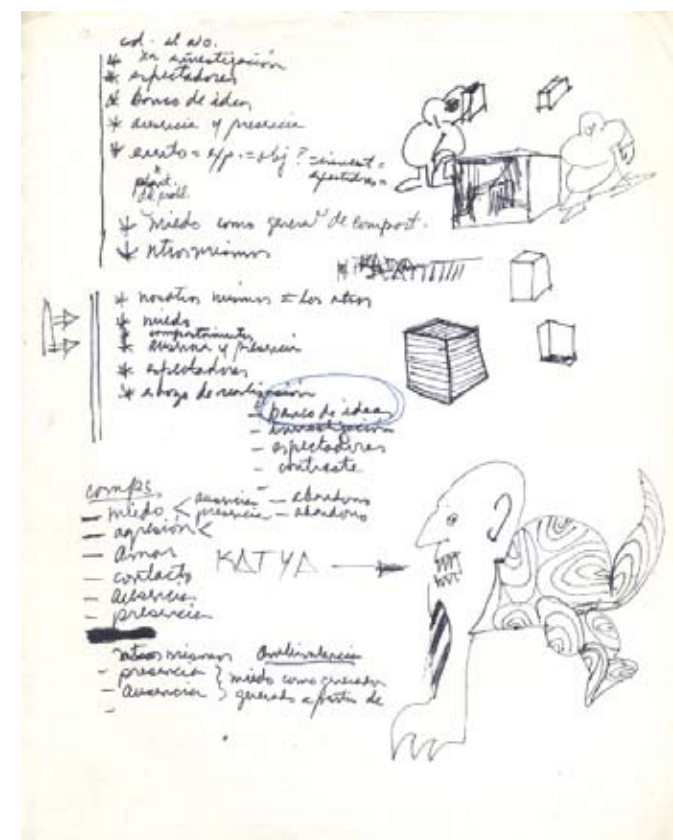 * investigación
* espectadores
* banco de ideas
* ausencia y presencia
* evento = exp. = obj ?
* miedo como de comport.
* ntros mismos
* nosotros mismos = los otros
* miedo
comportamientos
* ausencia y presencia
* espectadores
* de realización
- banco de ideas
- investigación
- espectadores
- contraste
-
comps.
- miedo < ausencia — abandono
presencia — abandono
- agresión <
- amor
- contacto
- ausencia
- presencia
KATYA
mismos ambivalencia
- presencia } miedo como generador
- ausencia } generado a partir de
-